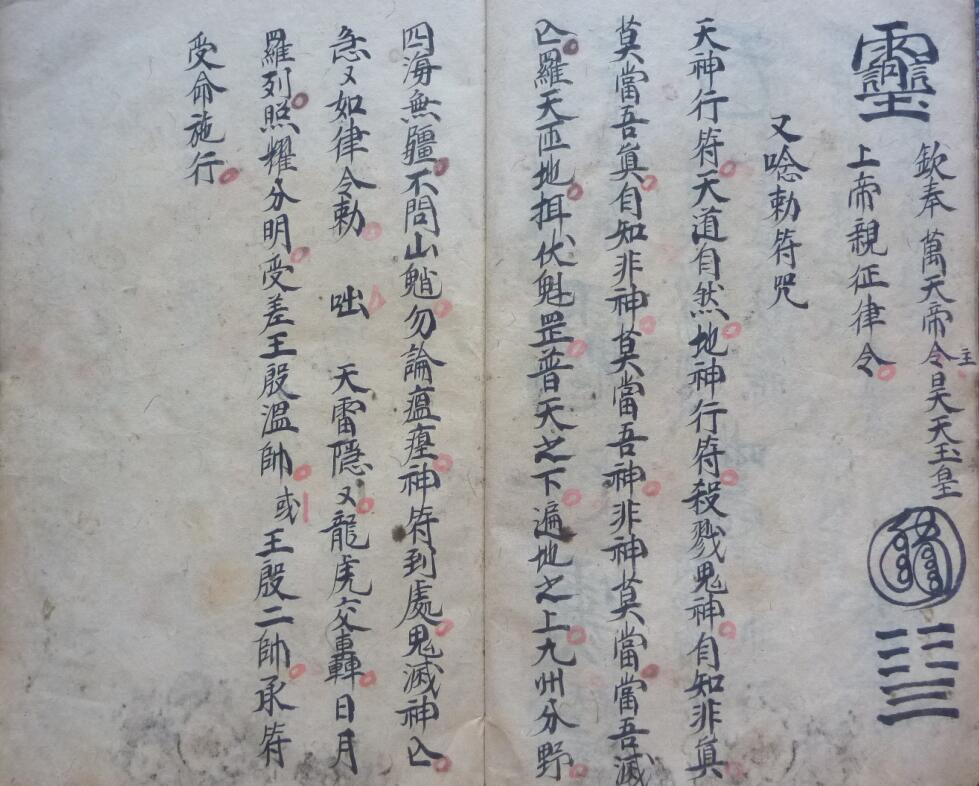 靈
欽奉 萬天帝令主昊天玉皇
上帝親征律令
又唸勅符咒
天神行符天道自然地神行符殺戮鬼神自知非真
莫當吾真自知非神莫當吾神非神莫當當吾滅
亾羅天匝地揖伏魁罡普天之下遍地之上九州分野
四海無疆不問山魈勿論瘟𤶣神符到處鬼滅神亾
急又如律令勅 咄 天雷隱又龍虎交轟日月
羅列照耀分明受差王殷溫帥或王殷二帥承符
受命施行